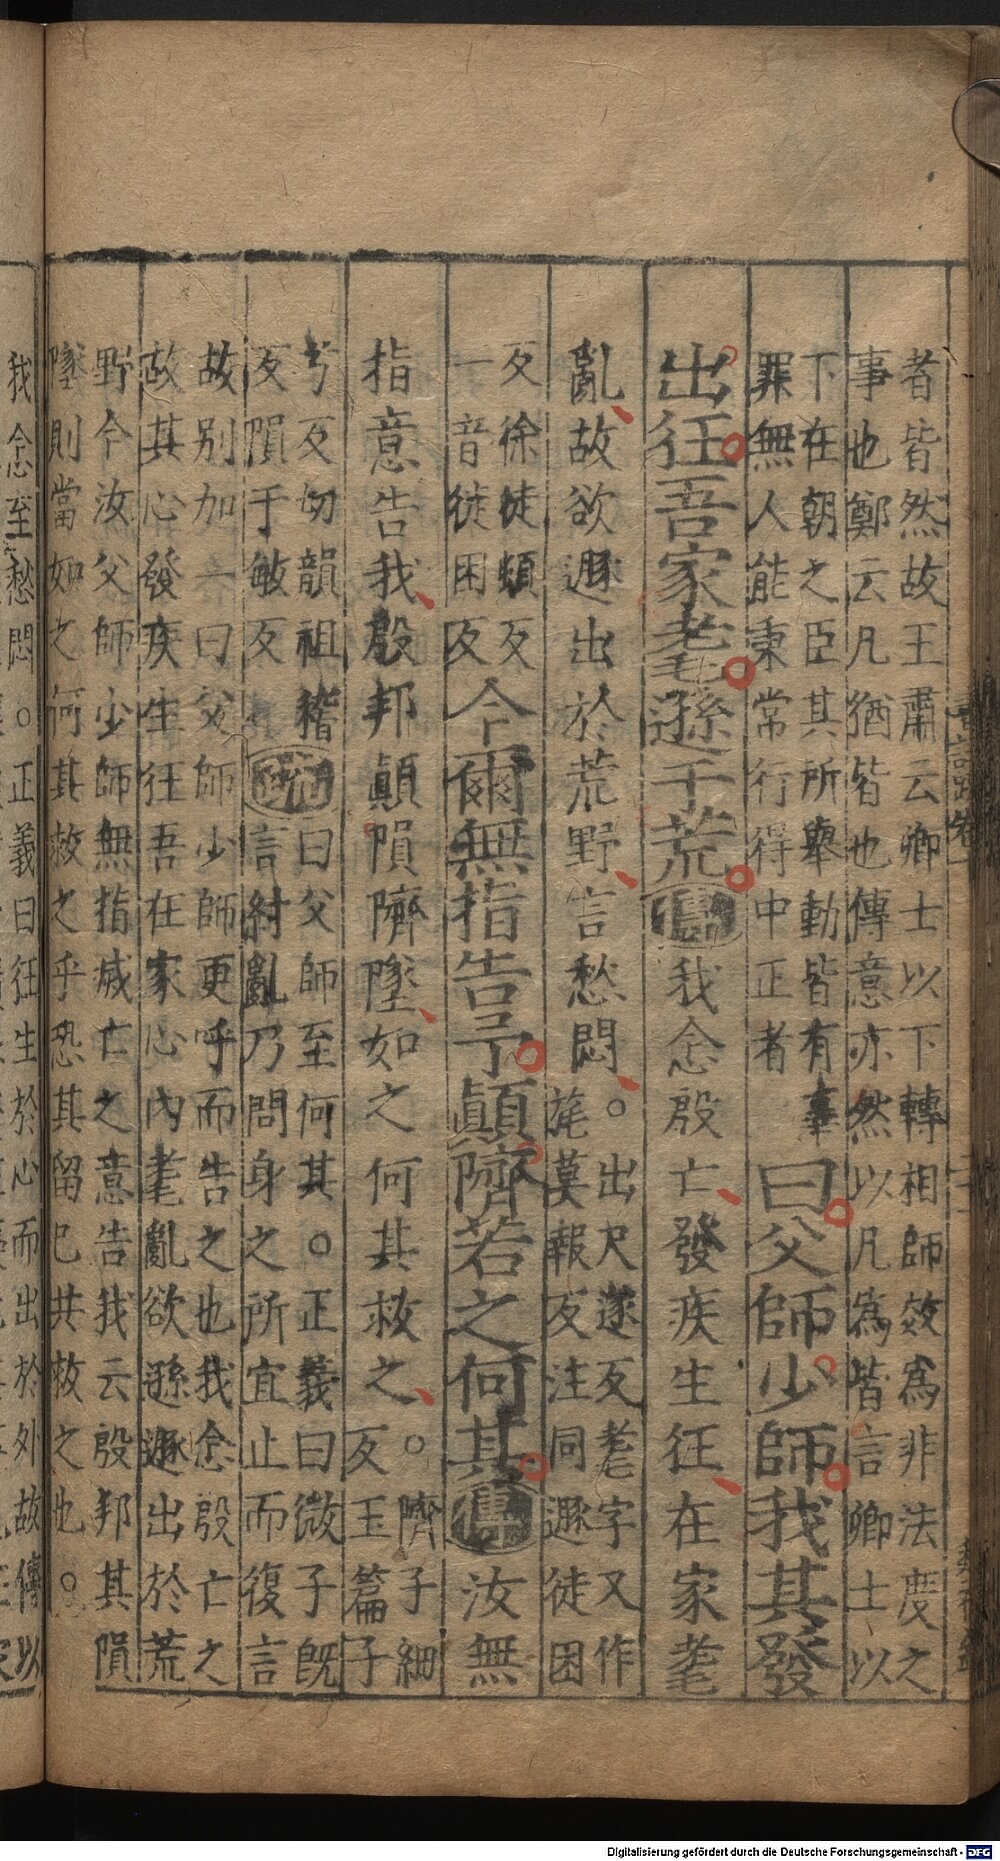 者皆然故王肅云卿士以下轉相師效爲非法度之
事也鄭云凡猶皆也傳意亦然以凡爲皆言卿士以
下在朝之臣其所舉動皆有辜
罪無人能秉常行得中正者
曰父師少師我其發
出狂吾家耄遜于荒傳我念殷亡發疾生狂在家耄
亂故欲遯出於荒野言愁悶○
出尺遂反耄字又作
旄莫報反注同遯徒困
反徐徒頓反
一音徒困反
今爾無指告予顛隮若之何其傳汝無
指意告我殷邦顛隕隮墜如之何其救之○
隮子細
反玉篇子
兮反切韻祖稽
反隕于敏反
疏
曰父師至何其○正義曰微子既
言紂亂乃問身之所宜止而復言
故別加一曰父師少師更呼而告之也我念殷亡之
故其心發疾生狂吾在家心內耄亂欲遜遯出於荒
野今汝父師少師無指滅亡之意告我云殷邦其隕
墜則當如之何其救之乎恐其留已共救之也○
我念至愁悶○正義曰狂生於心而出於外故傳以
Digitalisierung gefördert durch die Deutsche Forschungsgemeinschaft - DFG